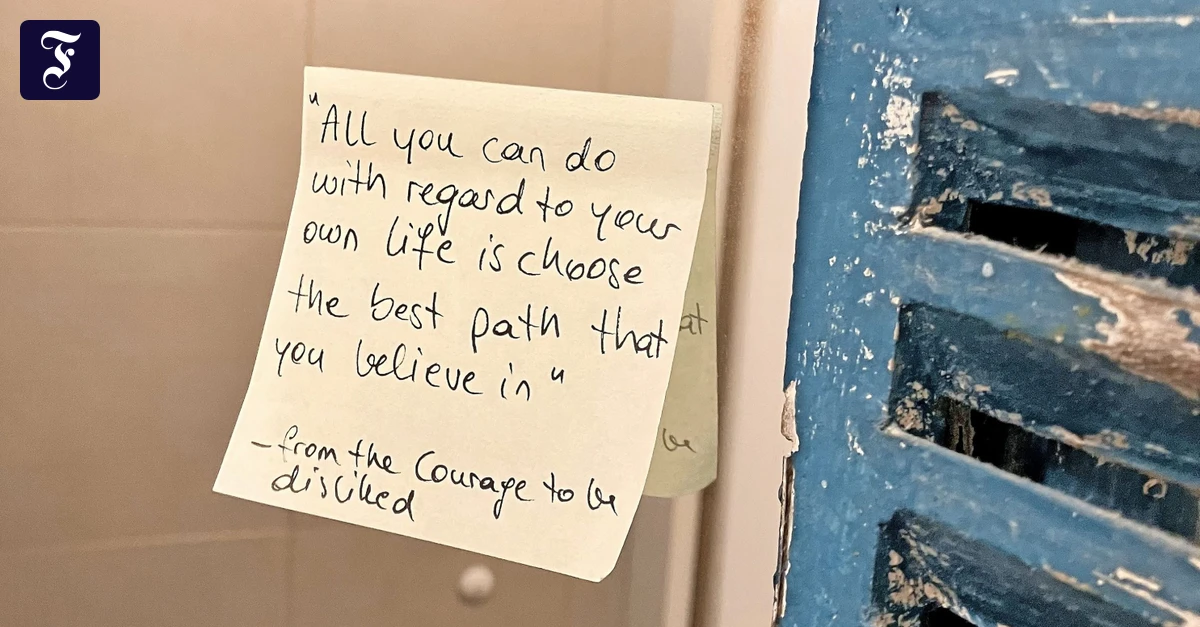 "All you can do
with regard to your
own life is choose
the best path that
you believe in"
- from the Courage to be
disliked
at
be
F